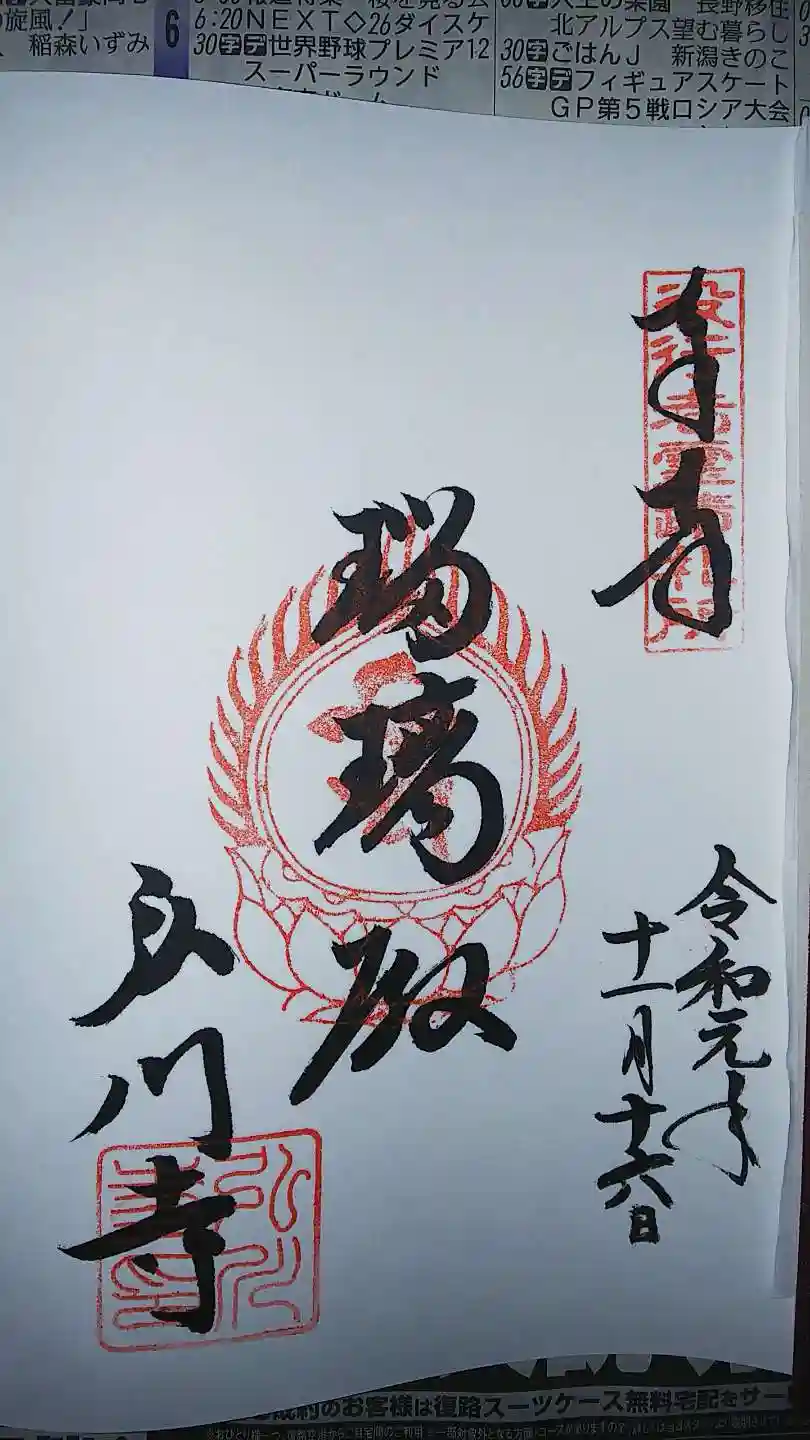 の旋風!」
稲森いずみ
6
6:20NEXT◇26ダイスケ
30字デ世界野球プレミア12
スーパーラウンド
人生の楽園 長野移住
北アルプス望む暮らし
30字ごはんJ 新潟きのこ
56字デフィギュアスケート
GP第5戦ロシア大会
奉拝
役行者霊蹟札所
令和元年
十一月十六日
瑠璃殿
弘川寺
弘川寺印
のお客様は復路スーツケース無料宅配をサー